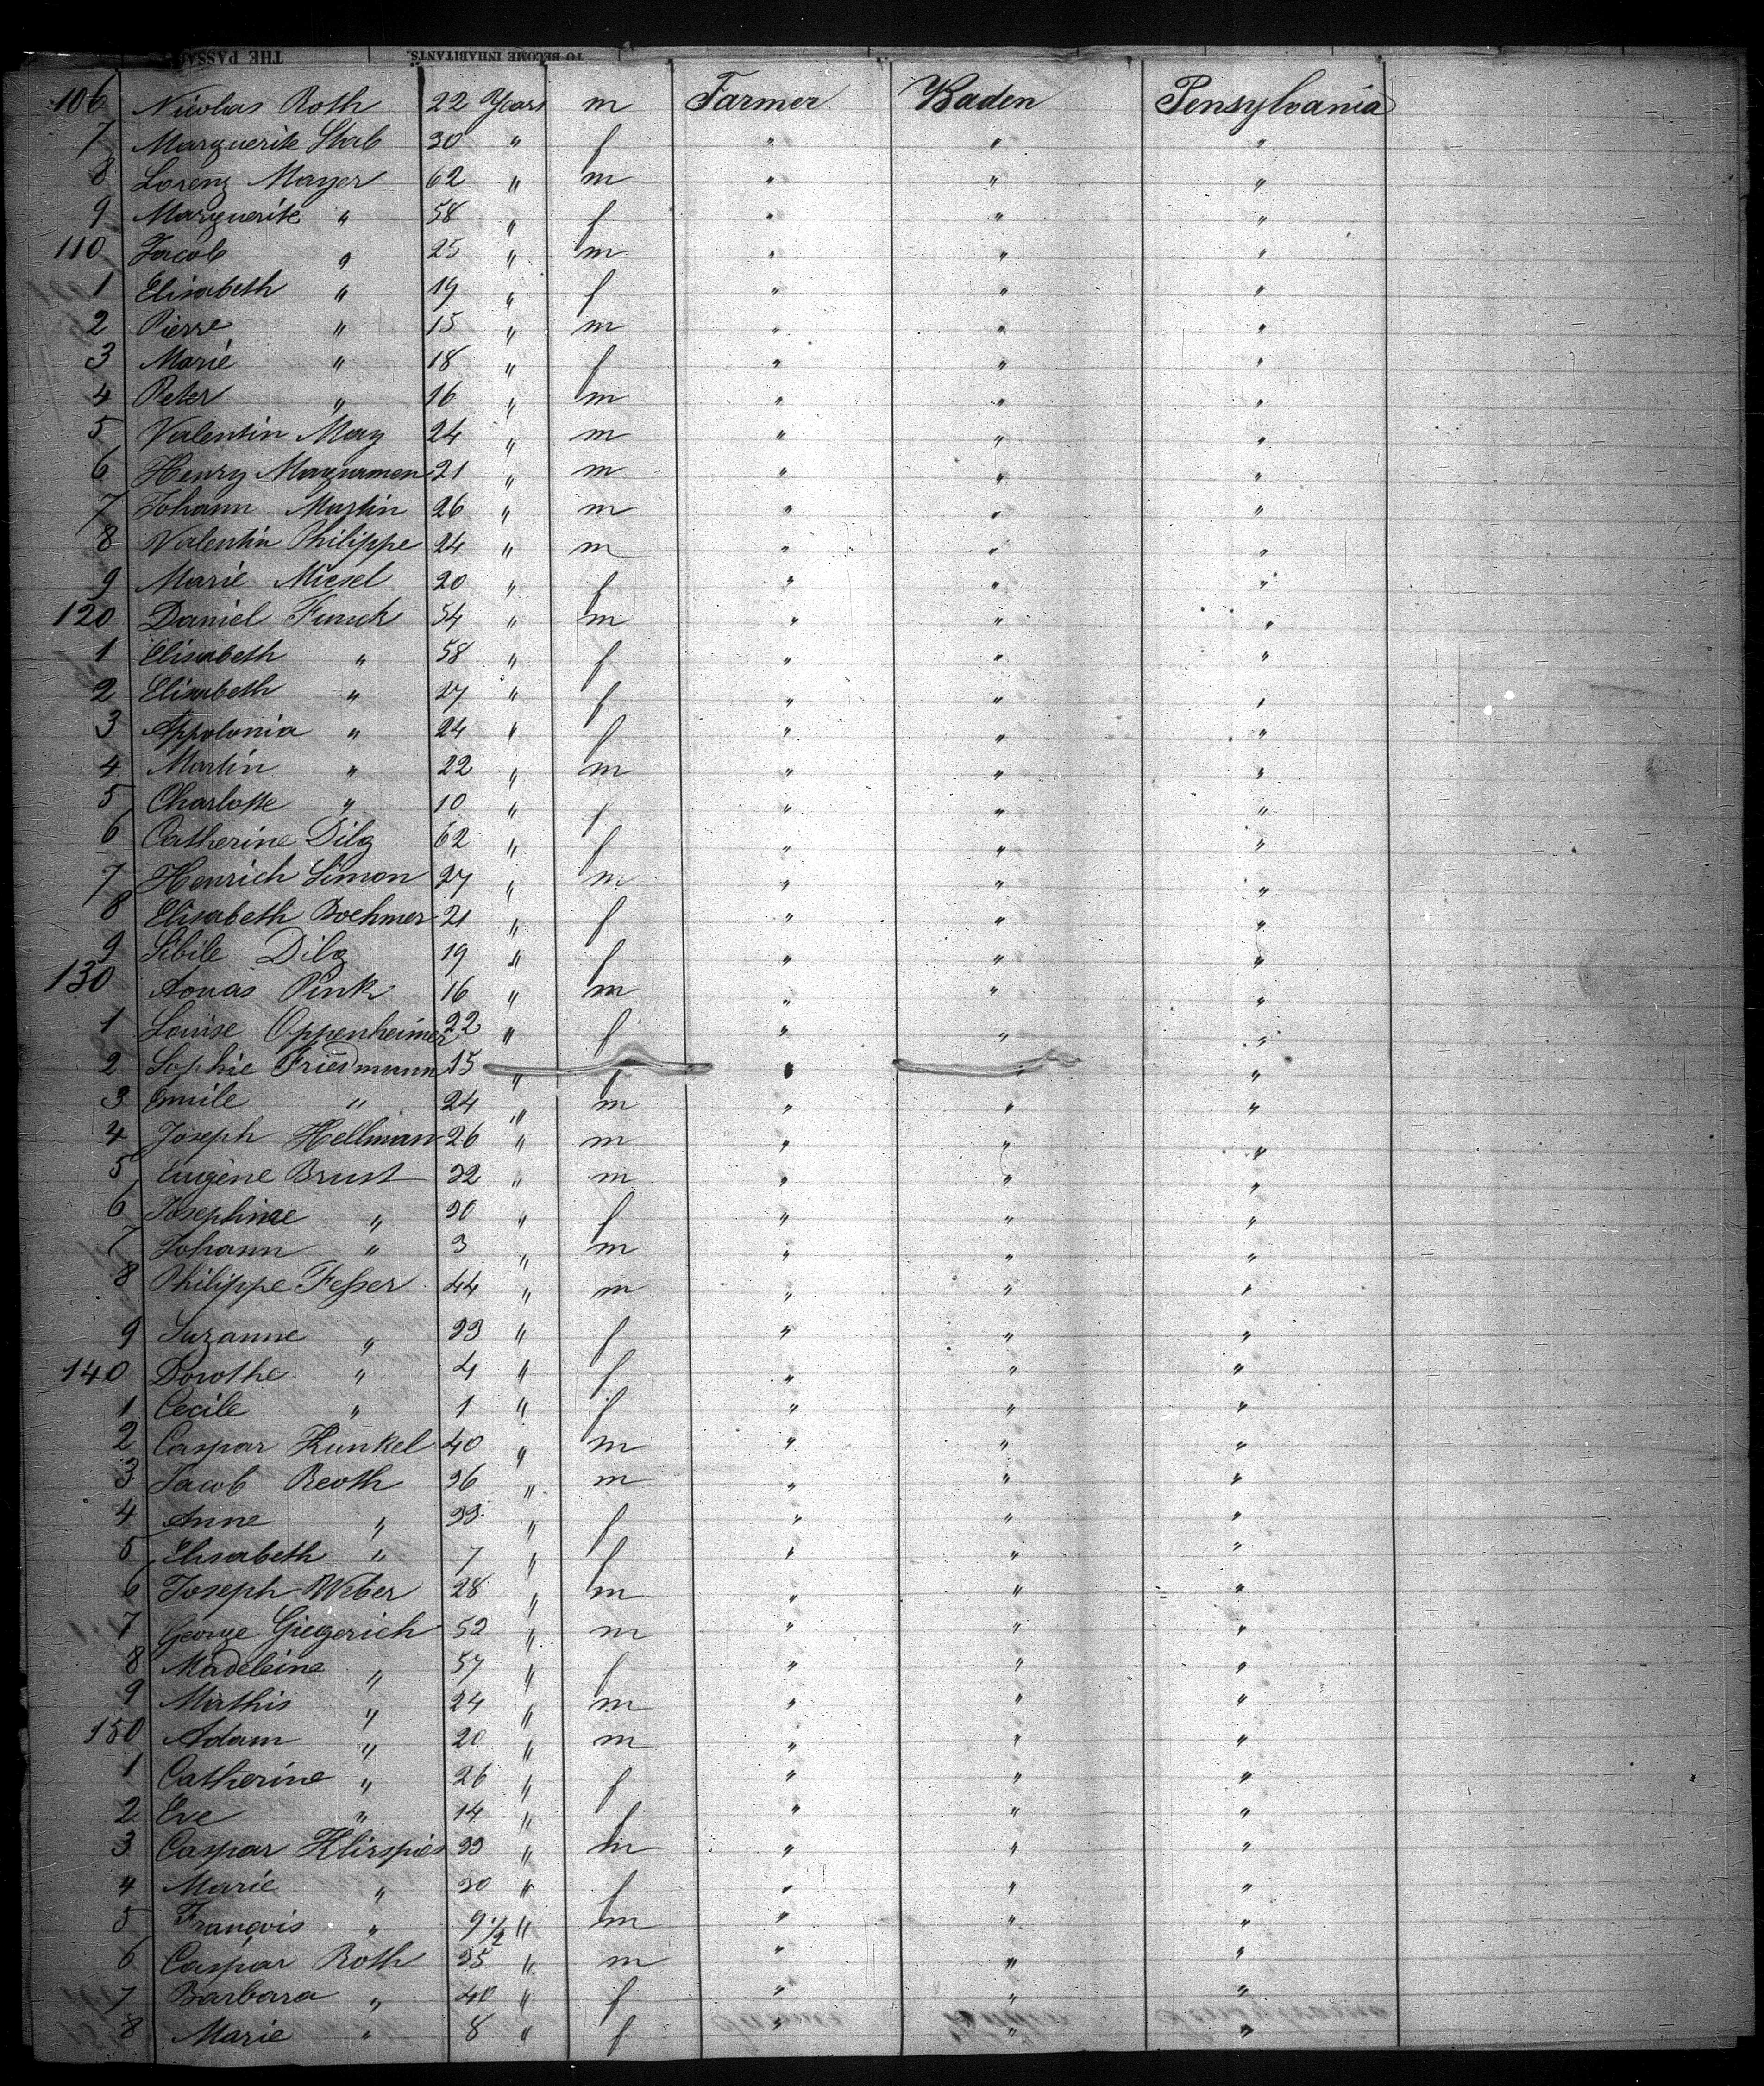 THE PASSAG TO BECOME INHABITANTS.
106 Nicolas Roth 22 Years m Farmer Baden Pensylvania
7 Marguerite Stab 30 " f " " "
8 Lorenz Mayer 62 " m " " "
9 Marguerite " 58 " f " " "
110 Jacob " 25 " m " " "
1 Elisabeth " 19 " f " " "
2 Pierre " 15 " m " " "
3 Marie " 18 " f " " "
4 Peter " 16 " m " " "
5 Valentin May 24 " m " " "
6 Henry 21 " m " " "
7 Johann Martin 26 " m " " "
8 Valentin Philippe 24 " m " " "
9 Marie Miesel 20 " f " " "
120 Daniel Funck 54 " m " " "
1 Elisabeth " 58 " f " " "
2 Elisabeth " 27 " f " " "
3 Appolonia " 24 " f " " "
4 Martin " 22 " m " " "
5 Charlotte " 10 " f " " "
6 Catherine Dilg 62 " f " " "
7 Henrich Simon 27 " m " " "
8 Elisabeth Boehmer 21 " f " " "
9 Sibile Dilg 19 " f " " "
130 Pink 16 " m " " "
1 Louise Oppenheimer 22 " f " " "
2 Sophie Friedmann 15 " f " " "
3 Emile " 24 " m " " "
4 Joseph Hellman 26 " m " " "
5 Eugène Brust 32 " m " " "
6 Josephine " 30 " f " " "
7 Johann " 3 " m " " "
8 Philippe Fesser 44 " m " " "
9 Suzanne " 33 " f " " "
140 Dorothe " 4 " f " " "
1 Cecile " 1 " f " " "
2 Caspar Kunkel 40 " m " " "
3 Jacob Reoth 36 " m " " "
4 Anne " 33 " f " " "
5 Elisabeth " 7 " f " " "
6 Joseph Weber 28 " m " " "
7 George Giegerich 52 " m " " "
8 Madeleine " 57 " f " " "
9 Mathis " 24 " m " " "
150 Adam " 20 " m " " "
1 Catherine " 26 " f " " "
2 Eve " 14 " f " " "
3 Caspar Klirspies 33 " m " " "
4 Marie " 30 " f " " "
5 François " 9 1/2 " m " " "
6 Caspar Roth 35 " m " " "
7 Barbara " 40 " f " " "
8 Marie " 8 " f " " "